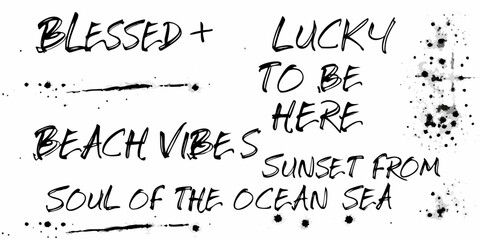 BLESSED +
LUCKY
TO BE
HERE
BEACH VIBES
SUNSET FROM
SOUL OF THE OCEAN SEA